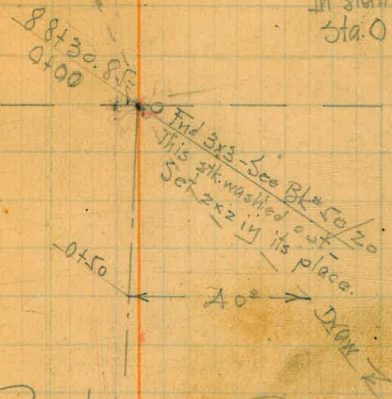 Sta. 0
88+30.85=
0+00
Fnd 3x3-See Bk# 50/20
This stk. washed out
Set 2x2 in its place.
0+50
40°
Draw